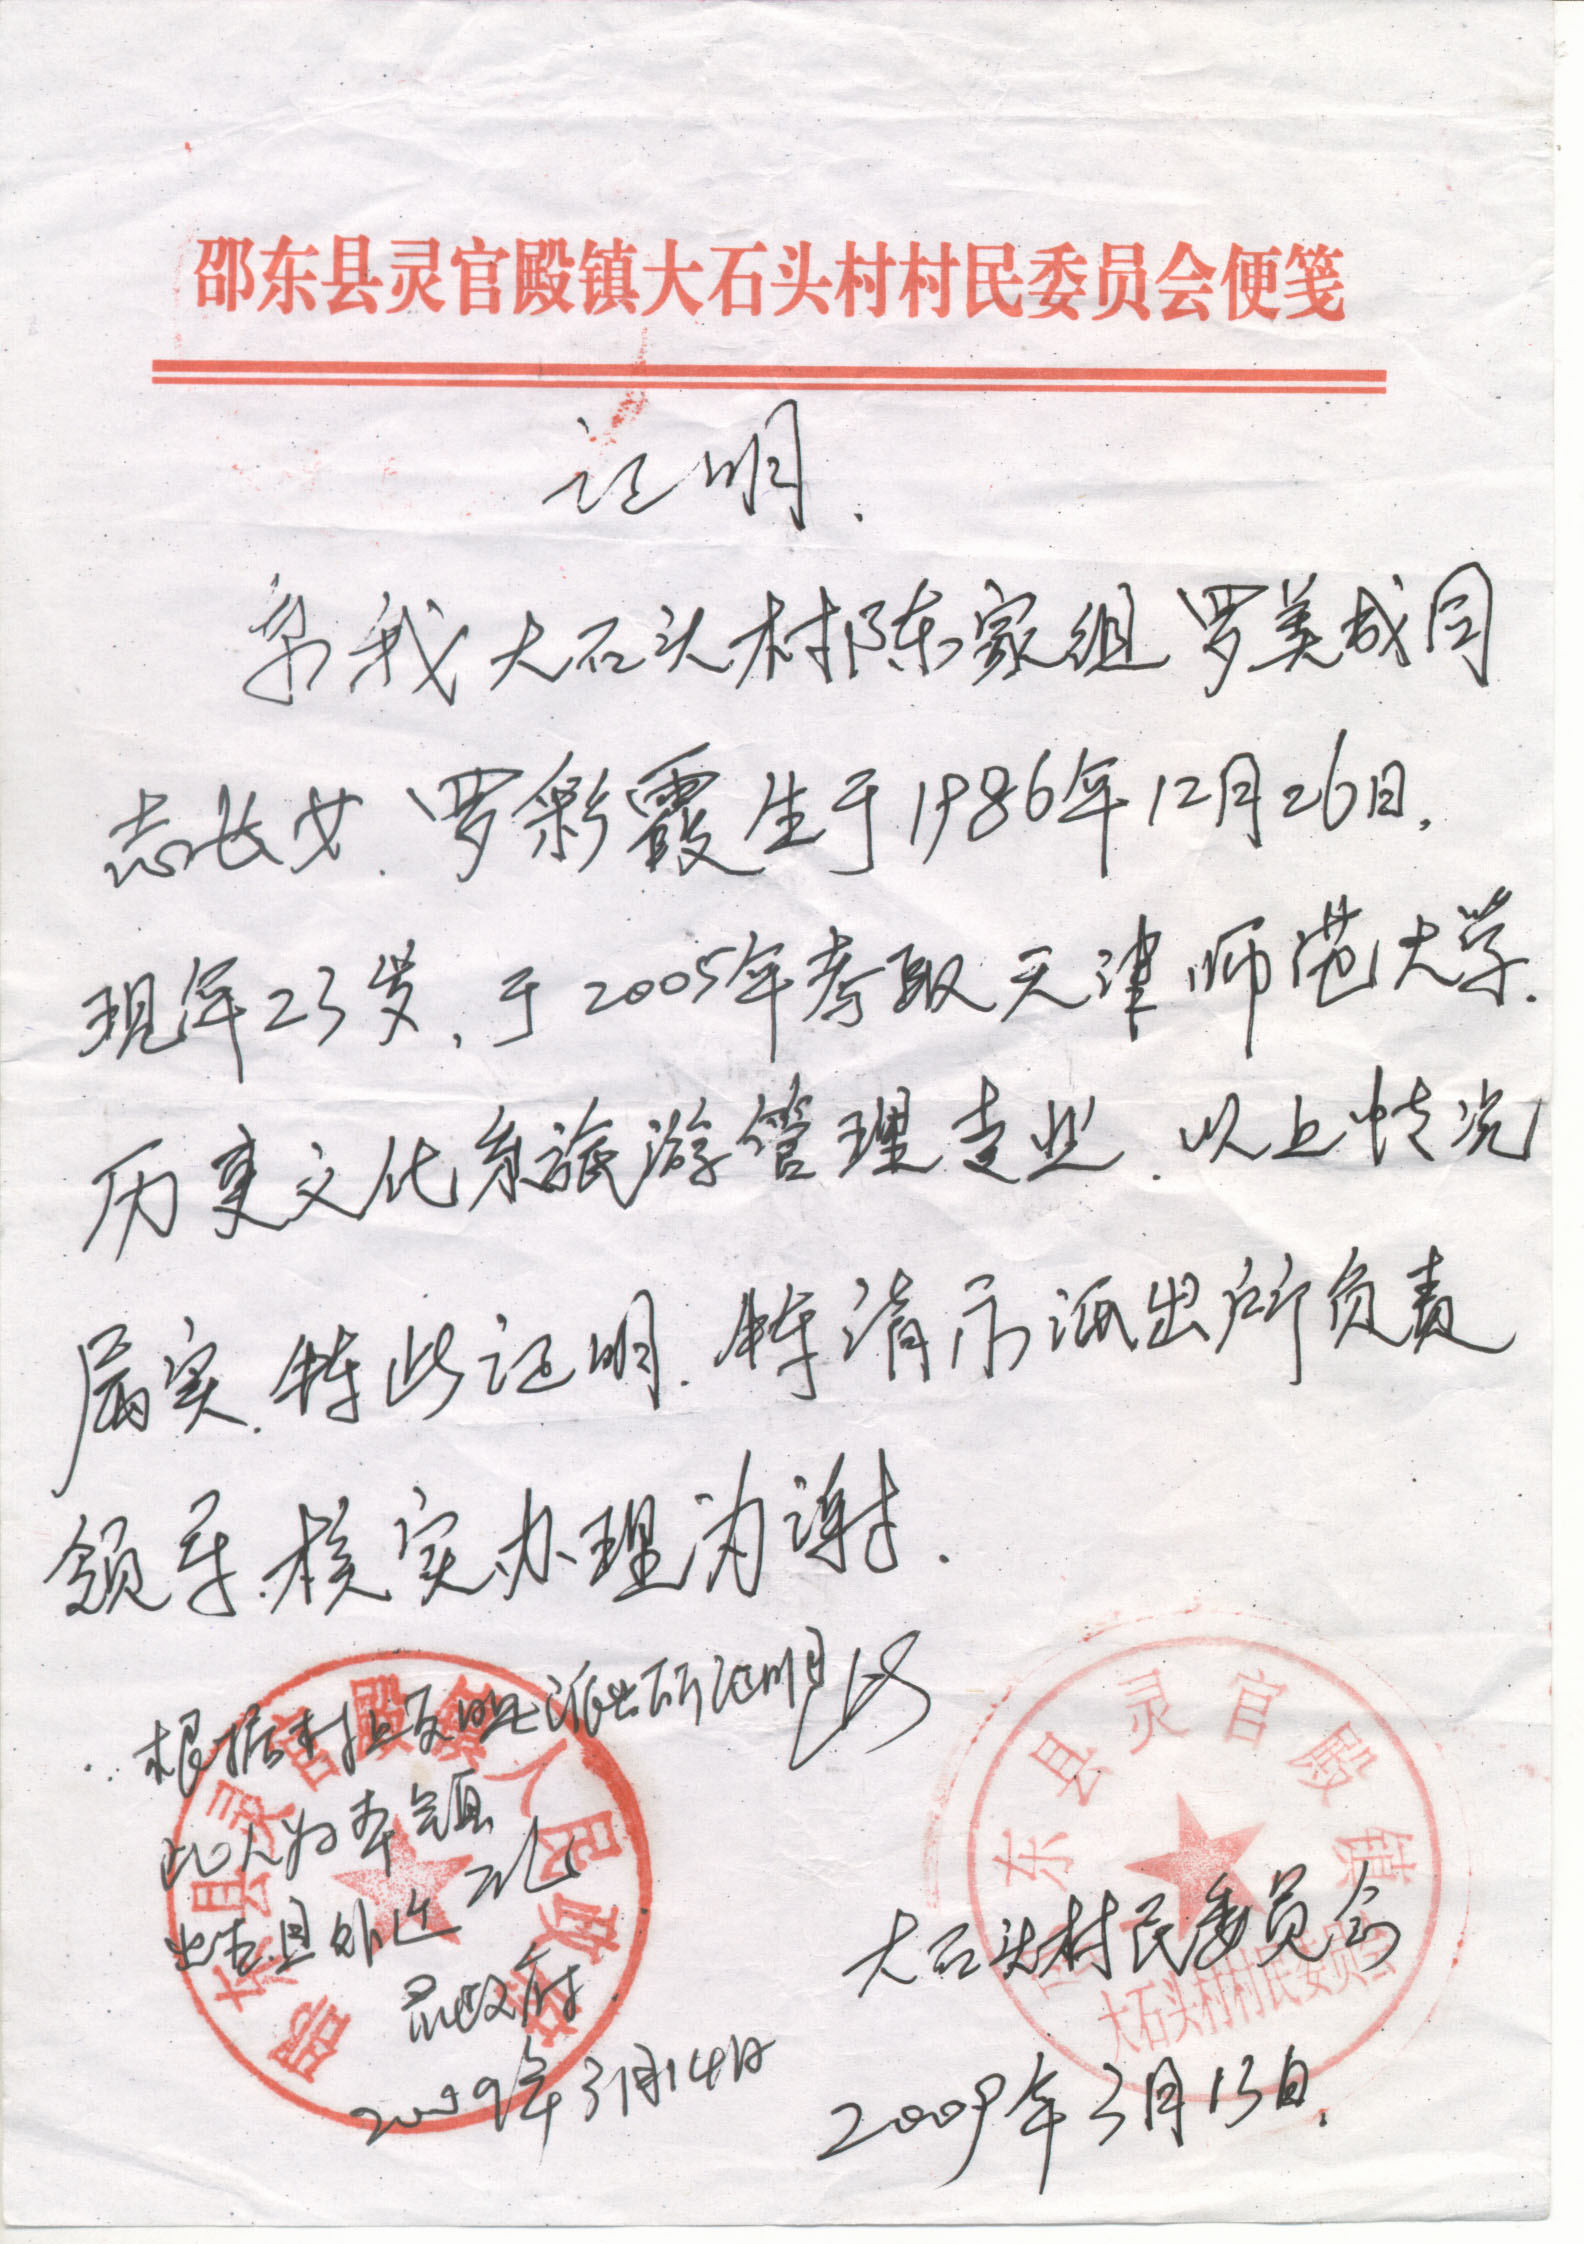 邵东县灵官殿镇大石头村村民委员会便笺
证明.
系我大石头村陈家组罗美成同
志长女.罗彩霞生于1986年12月26日,
现年23岁,于2005年考取天津师范大学.
历史文化系旅游管理专业.以上情况
属实.特此证明.特请示派出所负责
领导.核实办理为谢.
根据村上及派出所证明
此人为本镇
灵政府
2009年3月14日
邵东县灵官殿镇人民政府
东县灵官殿镇
大石头村村民委员会
大石头村民委员会
2009年3月13日.